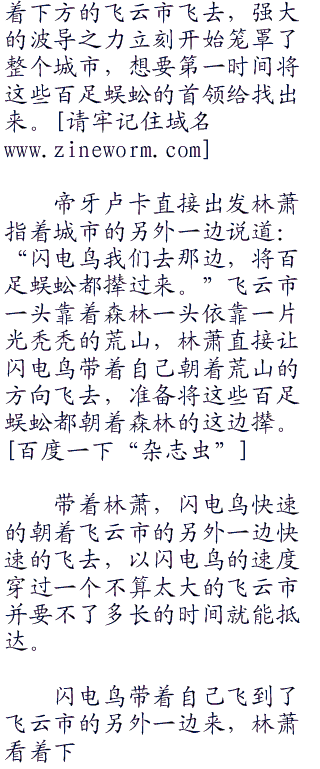 着下方的飞云市飞去，强大
的波导之力立刻开始笼罩了
整个城市，想要第一时间将
这些百足蜈蚣的首领给找出
来。[请牢记住域名
www.zineworm.com]
帝牙卢卡直接出发林萧
指着城市的另外一边说道：
“闪电鸟我们去那边，将百
足蜈蚣都撵过来。”飞云市
一头靠着森林一头依靠一片
光秃秃的荒山，林萧直接让
闪电鸟带着自己朝着荒山的
方向飞去，准备将这些百足
蜈蚣都朝着森林的这边撵。
[百度一下“杂志虫”]
带着林萧，闪电鸟快速
的朝着飞云市的另外一边快
速的飞去，以闪电鸟的速度
穿过一个不算太大的飞云市
并要不了多长的时间就能抵
达。
闪电鸟带着自己飞到了
飞云市的另外一边来，林萧
看着下